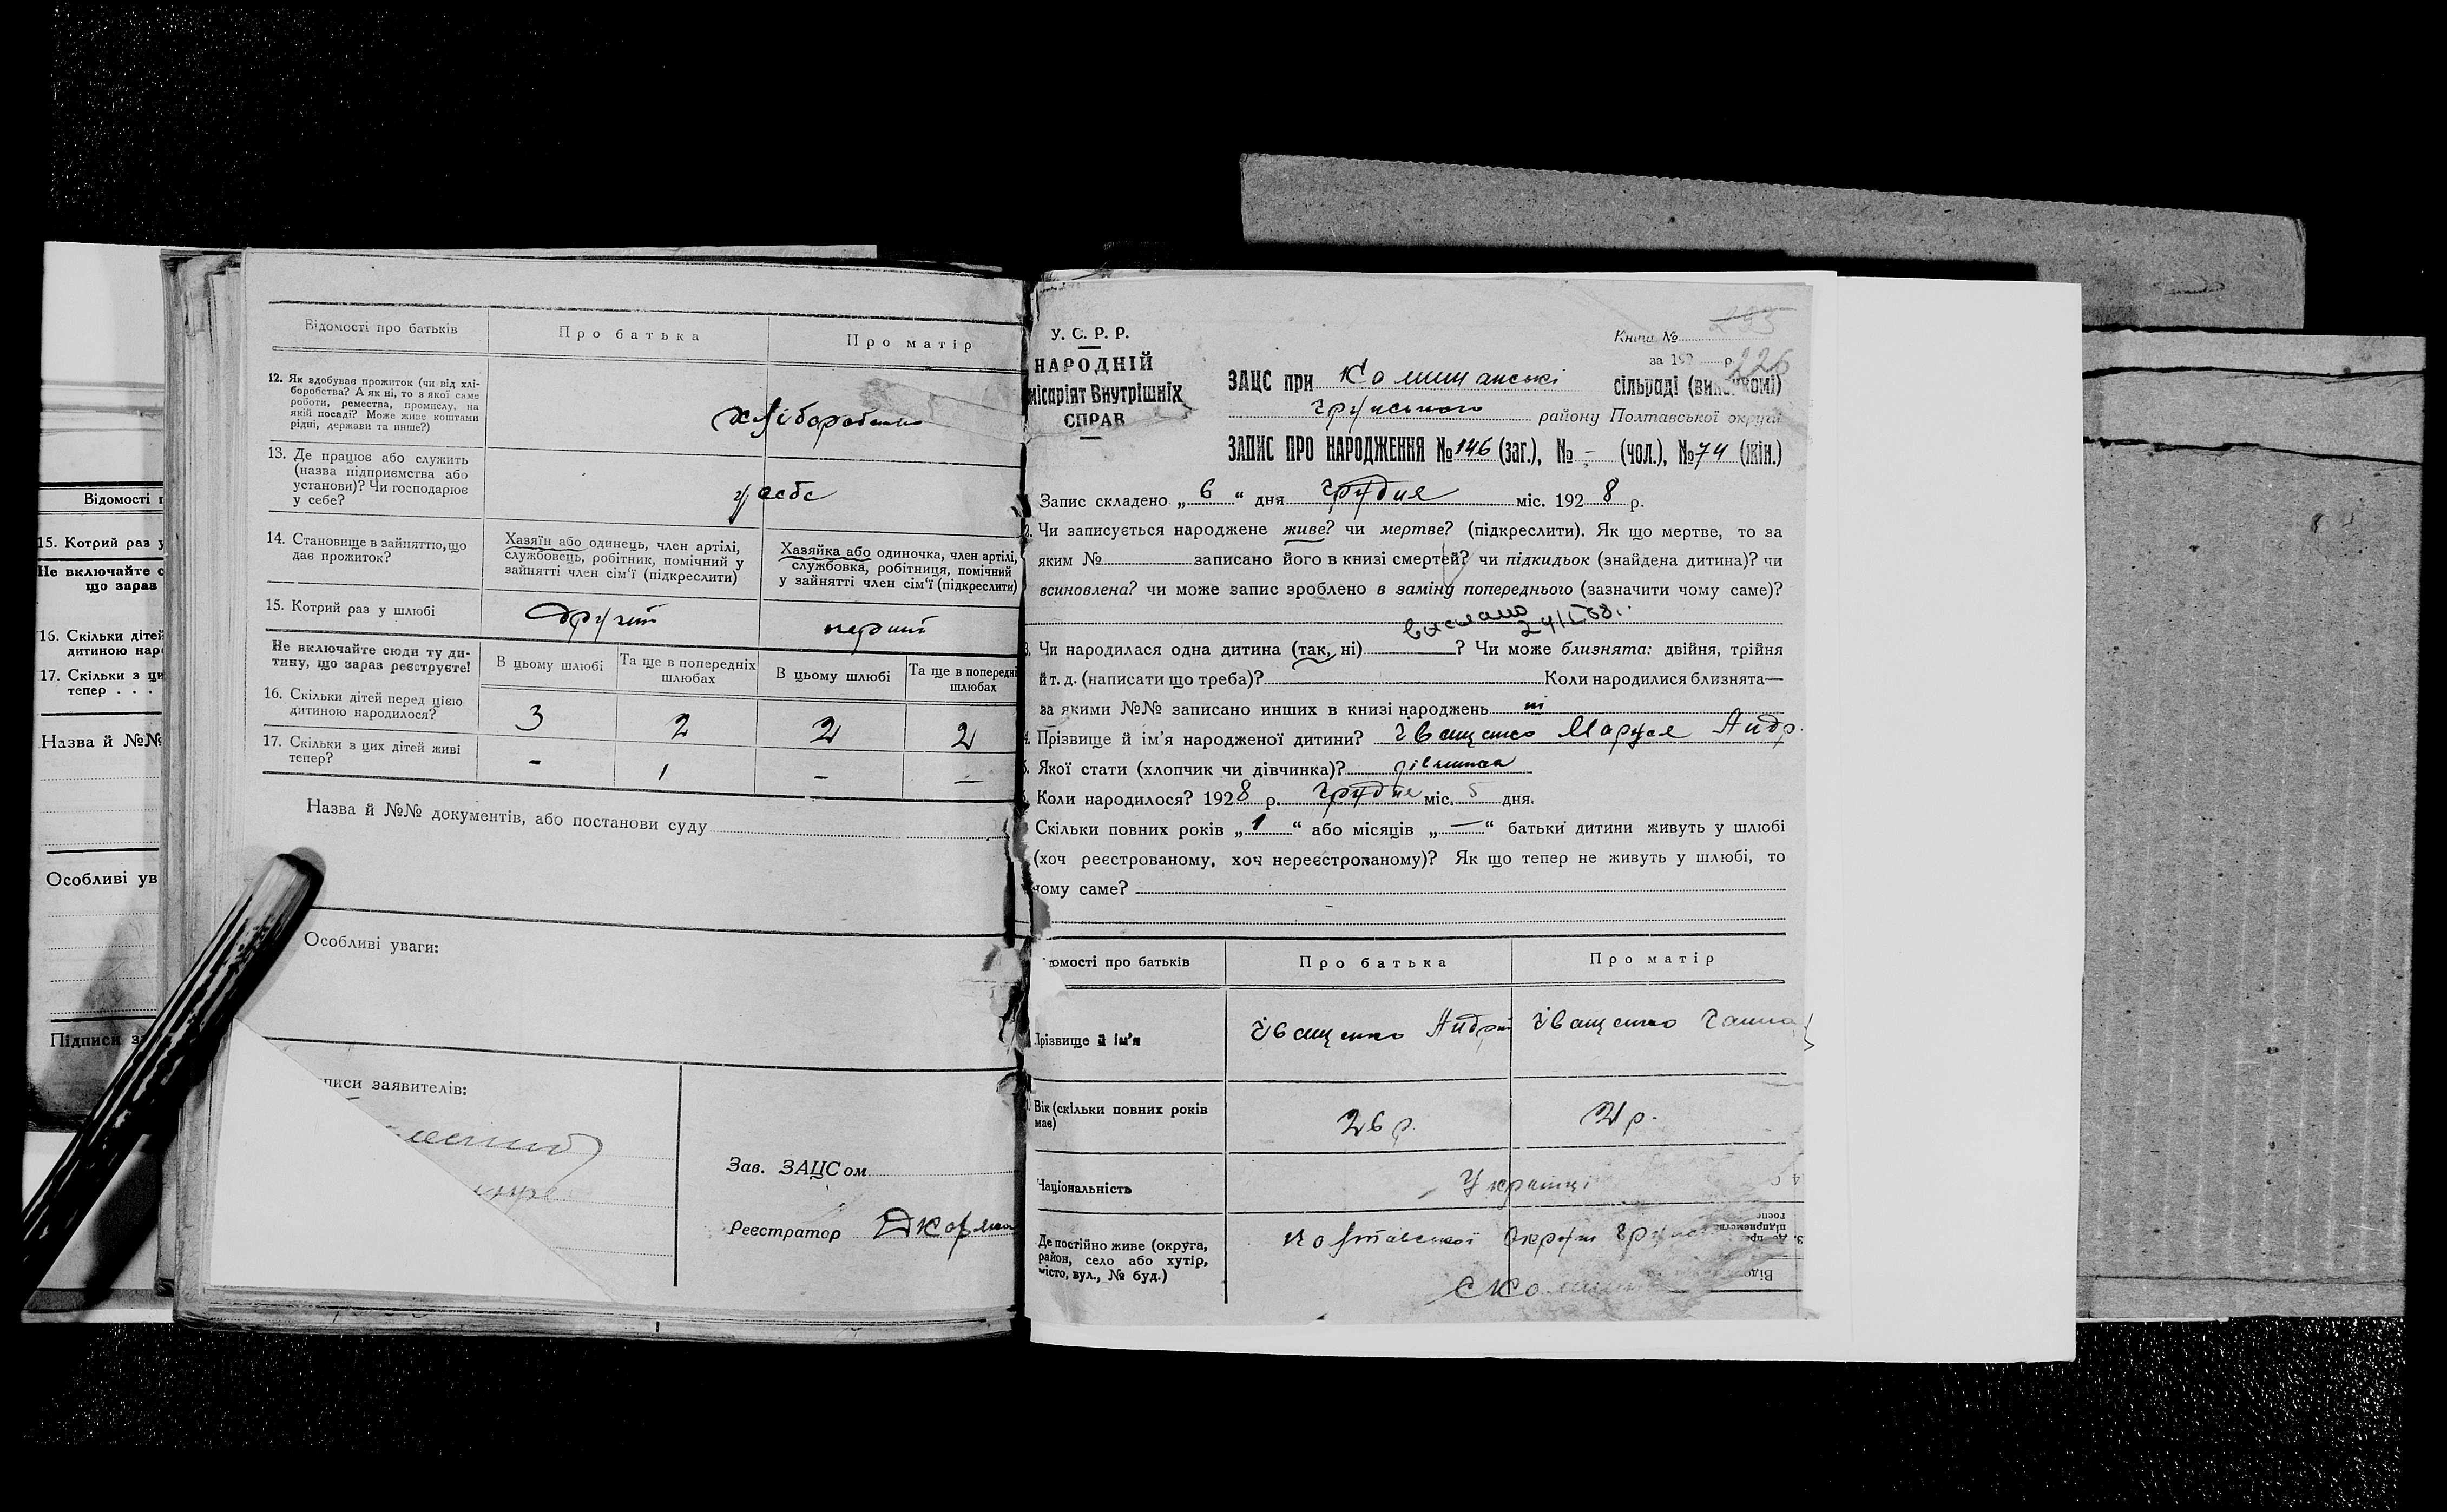 Відомості п
15. Котрий раз у
Не включайте с
що зараз
16. Скільки дітей
дитиною наро
17. Скільки з ци
тепер . . .
Назва й №№
Особливі ув
Підписи з
Відомості про батьків
Про батька
Про матір
12. Як здобуває прожиток (чи від хлі-
боробства? А як ні, то з якої саме
роботи, ремества, промислу, на
якій посаді? Може живе коштами
рідні, держави та инше?)
13. Де працює або служить
(назва підприємства або
установи)? Чи господарює
у себе?
у себе
14. Становище в зайняттю, що
дає прожиток?
Хазяїн або одинець, член артілі,
службовець, робітник, помічний у
зайнятті член сім'ї (підкреслити)
Хазяйка або одиночка, член артілі,
службовка, робітниця, помічний
у зайнятті член сім'ї (підкреслити)
15. Котрий раз у шлюбі
другий
перший
Не включайте сюди ту ди-
тину, що зараз реєструєте!
В цьому шлюбі
Та ще в попередніх
шлюбах
В цьому шлюбі
Та ще в попередні
шлюбах
16. Скільки дітей перед цією
дитиною народилося?
3
2
2
2
17. Скільки з цих дітей живі
тепер?
-
1
-
-
Назва й №№ документів, або постанови суду
Особливі уваги:
писи заявителів:
Зав. ЗАЦСом
Реєстратор
У. С. Р. Р.
НАРОДНІЙ
місаріят Внутрішніх
СПРАВ
Книга №
за 192 р.
226
ЗАЦС при Комишанські сільраді (виконкомі)
Грунського району Полтавської округи
ЗАПИС ПРО НАРОДЖЕННЯ №146 (заг.), № - (чол.), №74 (жін.)
Запис складено „6“ дня Грудня міс. 1928 р.
Чи записується народжене живе? чи мертве? (підкреслити). Як що мертве, то за
яким № записано його в книзі смертей? чи підкидьок (знайдена дитина)? чи
всиновлена? чи може запис зроблено в заміну попереднього (зазначити чому саме)?
Чи народилася одна дитина (так, ні) ? Чи може близнята: двійня, трійня
й т. д. (написати що треба)? Коли народилися близнята—
за якими №№ записано инших в книзі народжень ні
Прізвище й ім'я народженої дитини? Іващенко Маруся Андр.
Якої стати (хлопчик чи дівчинка)? дівчинка
Коли народилося? 1928 р. Грудня міс. 5 дня.
Скільки повних років „1“ або місяців „—“ батьки дитини живуть у шлюбі
(хоч реєстрованому, хоч нереєстрованому)? Як що тепер не живуть у шлюбі, то
чому саме?
омості про батьків
Про батька
Про матір
Прізвище й ім'я
Іващенко Андрій
Іващенко Ганна
Вік (скільки повних років
має)
26 р.
21 р.
Національність
Українці
Де постійно живе (округа,
район, село або хутір,
місто, вул., № буд.)
Полтавської Округи